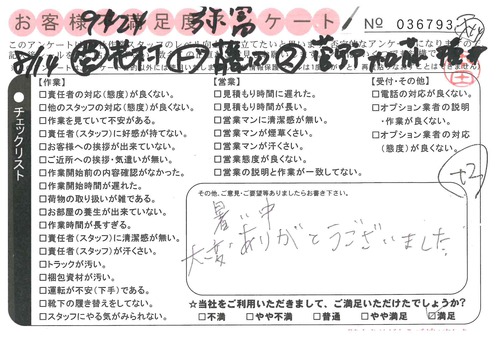 お客様満足度アンケート
9/24 弥富
No 036793
8/14
チェックリスト
【作業】
□責任者の対応(態度)が良くない。
□他のスタッフの対応(態度)が良くない。
□作業を見ていて不安がある。
□責任者(スタッフ)に好感が持てない。
□お客様への挨拶が出来ていない。
□ご近所への挨拶・気遣いが無い。
□作業開始前の内容確認がなかった。
□作業開始時間が遅れた。
□荷物の取り扱いが雑である。
□お部屋の養生が出来ていない。
□作業時間が長すぎる。
□責任者(スタッフ)に清潔感が無い。
□責任者(スタッフ)が汗くさい。
□トラックが汚い。
□梱包資材が汚い。
□運転が不安(下手)である。
□靴下の履き替えをしてない。
□スタッフにやる気がみられない。
【営業】
□見積もり時間に遅れた。
□見積もり時間が長い。
□営業マンに清潔感が無い。
□営業マンが煙草くさい。
□営業マンが汗くさい。
□営業態度が良くない。
□営業の説明と作業が一致してない。
【受付・その他】
□電話の対応が良くない。
□オプション業者の説明
・作業が良くない。
□オプション業者の対応
(態度)が良くない。
+2
その他、ご意見・ご要望等ありましたらお書き下さい。
暑い中
大変ありがとうございました。
☆当社をご利用いただきまして、ご満足いただけたでしょうか?
□不満 □やや不満 □普通 □やや満足 ☑満足